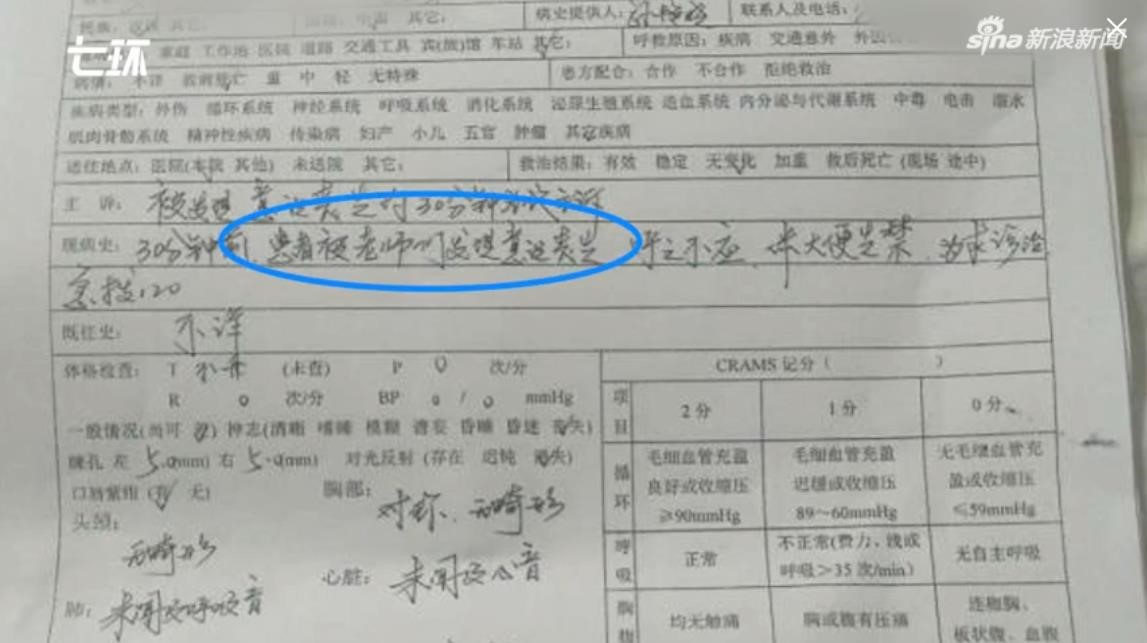 病史提供人：
联系人及电话：
七环
sina新浪新闻
家庭 工作地 医院 道路 交通工具 宾(旅)馆 车站 其它：
呼救原因：疾病 交通意外
病情：不详 救前死亡 重 中 轻 无特殊
患方配合：合作 不合作 拒绝救治
疾病类型：外伤 循环系统 神经系统 呼吸系统 消化系统 泌尿生殖系统 造血系统 内分泌与代谢系统 中毒 电击 溺水
肌肉骨骼系统 精神性疾病 传染病 妇产 小儿 五官 肿瘤 其它疾病
送往地点：医院(本院 其他) 未送院 其它：
救治结果：有效 稳定 无变化 加重 救后死亡 (现场 途中)
主 诉：被发现意识丧失约30分钟
现病史：30分钟前，患者被老师们发现意识丧失 呼之不应，伴大便失禁，为求诊治
急拨120
既往史：不详
体格检查：T 未查 (未查) P 0 次/分
R 0 次/分 BP 0 / 0 mmHg
一般情况(尚可 差) 神志(清晰 嗜睡 模糊 谵妄 昏睡 昏迷 丧失)
瞳孔 左 5.0(mm) 右 5.0(mm) 对光反射 (存在 迟钝 消失)
口唇紫绀 (有 无)
胸部：对称、无畸形
头颈：
无畸形
心脏：未闻及心音
肺：未闻及呼吸音
CRAMS 记分 ( )
项目 2分 1分 0分
循环
毛细血管充盈良好或收缩压≥90mmHg
毛细血管充盈迟缓或收缩压89～60mmHg
无毛细血管充盈或收缩压≤59mmHg
呼吸
正常
不正常(费力、浅或呼吸>35 次/min)
无自主呼吸
胸腹
均无触痛
胸或腹有压痛
连枷胸、
板状腹、